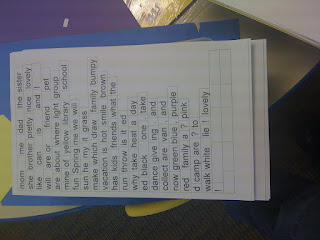 mom me dad the sister
she brother pretty nice lovely
like can is and I
will are or friend pet
are about where light group
mine of yellow library school
fun Spring me we will
sun has my it grass
make which draw family bumpy
vacation is hot smile brown
has kids friends what the
run throw is it ed
why take heat a day
ed black one take
dance give ing and
collect are van and
now green blue purple
red family a pink
d camp are ? to
walk white lie I lovely
!